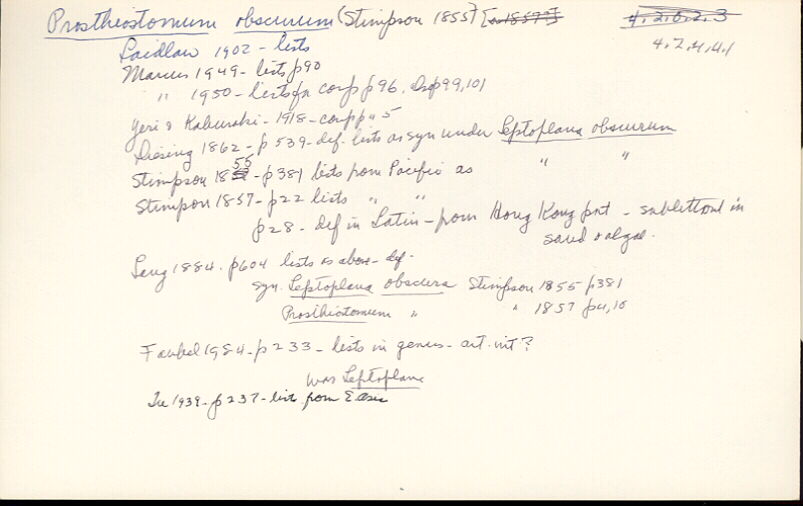 Prostheostomum obscurum (Stimpson 1855) [as 1857?] 4.2.6.2.3
4.7.4.4.1
Laidlaw 1902 - lists
Marcus 1949 - lists p90
" 1950 - lists for comp p96, Disp 99,101
Yeri & Kaburaki - 1918 - comp p45
Diesing 1862 - p 539 - def. lists as syn under Leptoplana obscurum
Stimpson 1855 - p381 lists from Pacific as " "
Stimpson 1857 - p22 lists " "
p28 - def in Latin - from Hong Kong port - sublittoral in
sand & algae.
Lang 1884. p604 lists as above - def.
syn. Leptoplana obscura Stimpson 1855 p381
Prosthiostomum " " 1857 p4,10
Faubel 1984 - p233 - lists in genus - art. int?
was Leptoplana
1939 - p237 - lists from E Asia